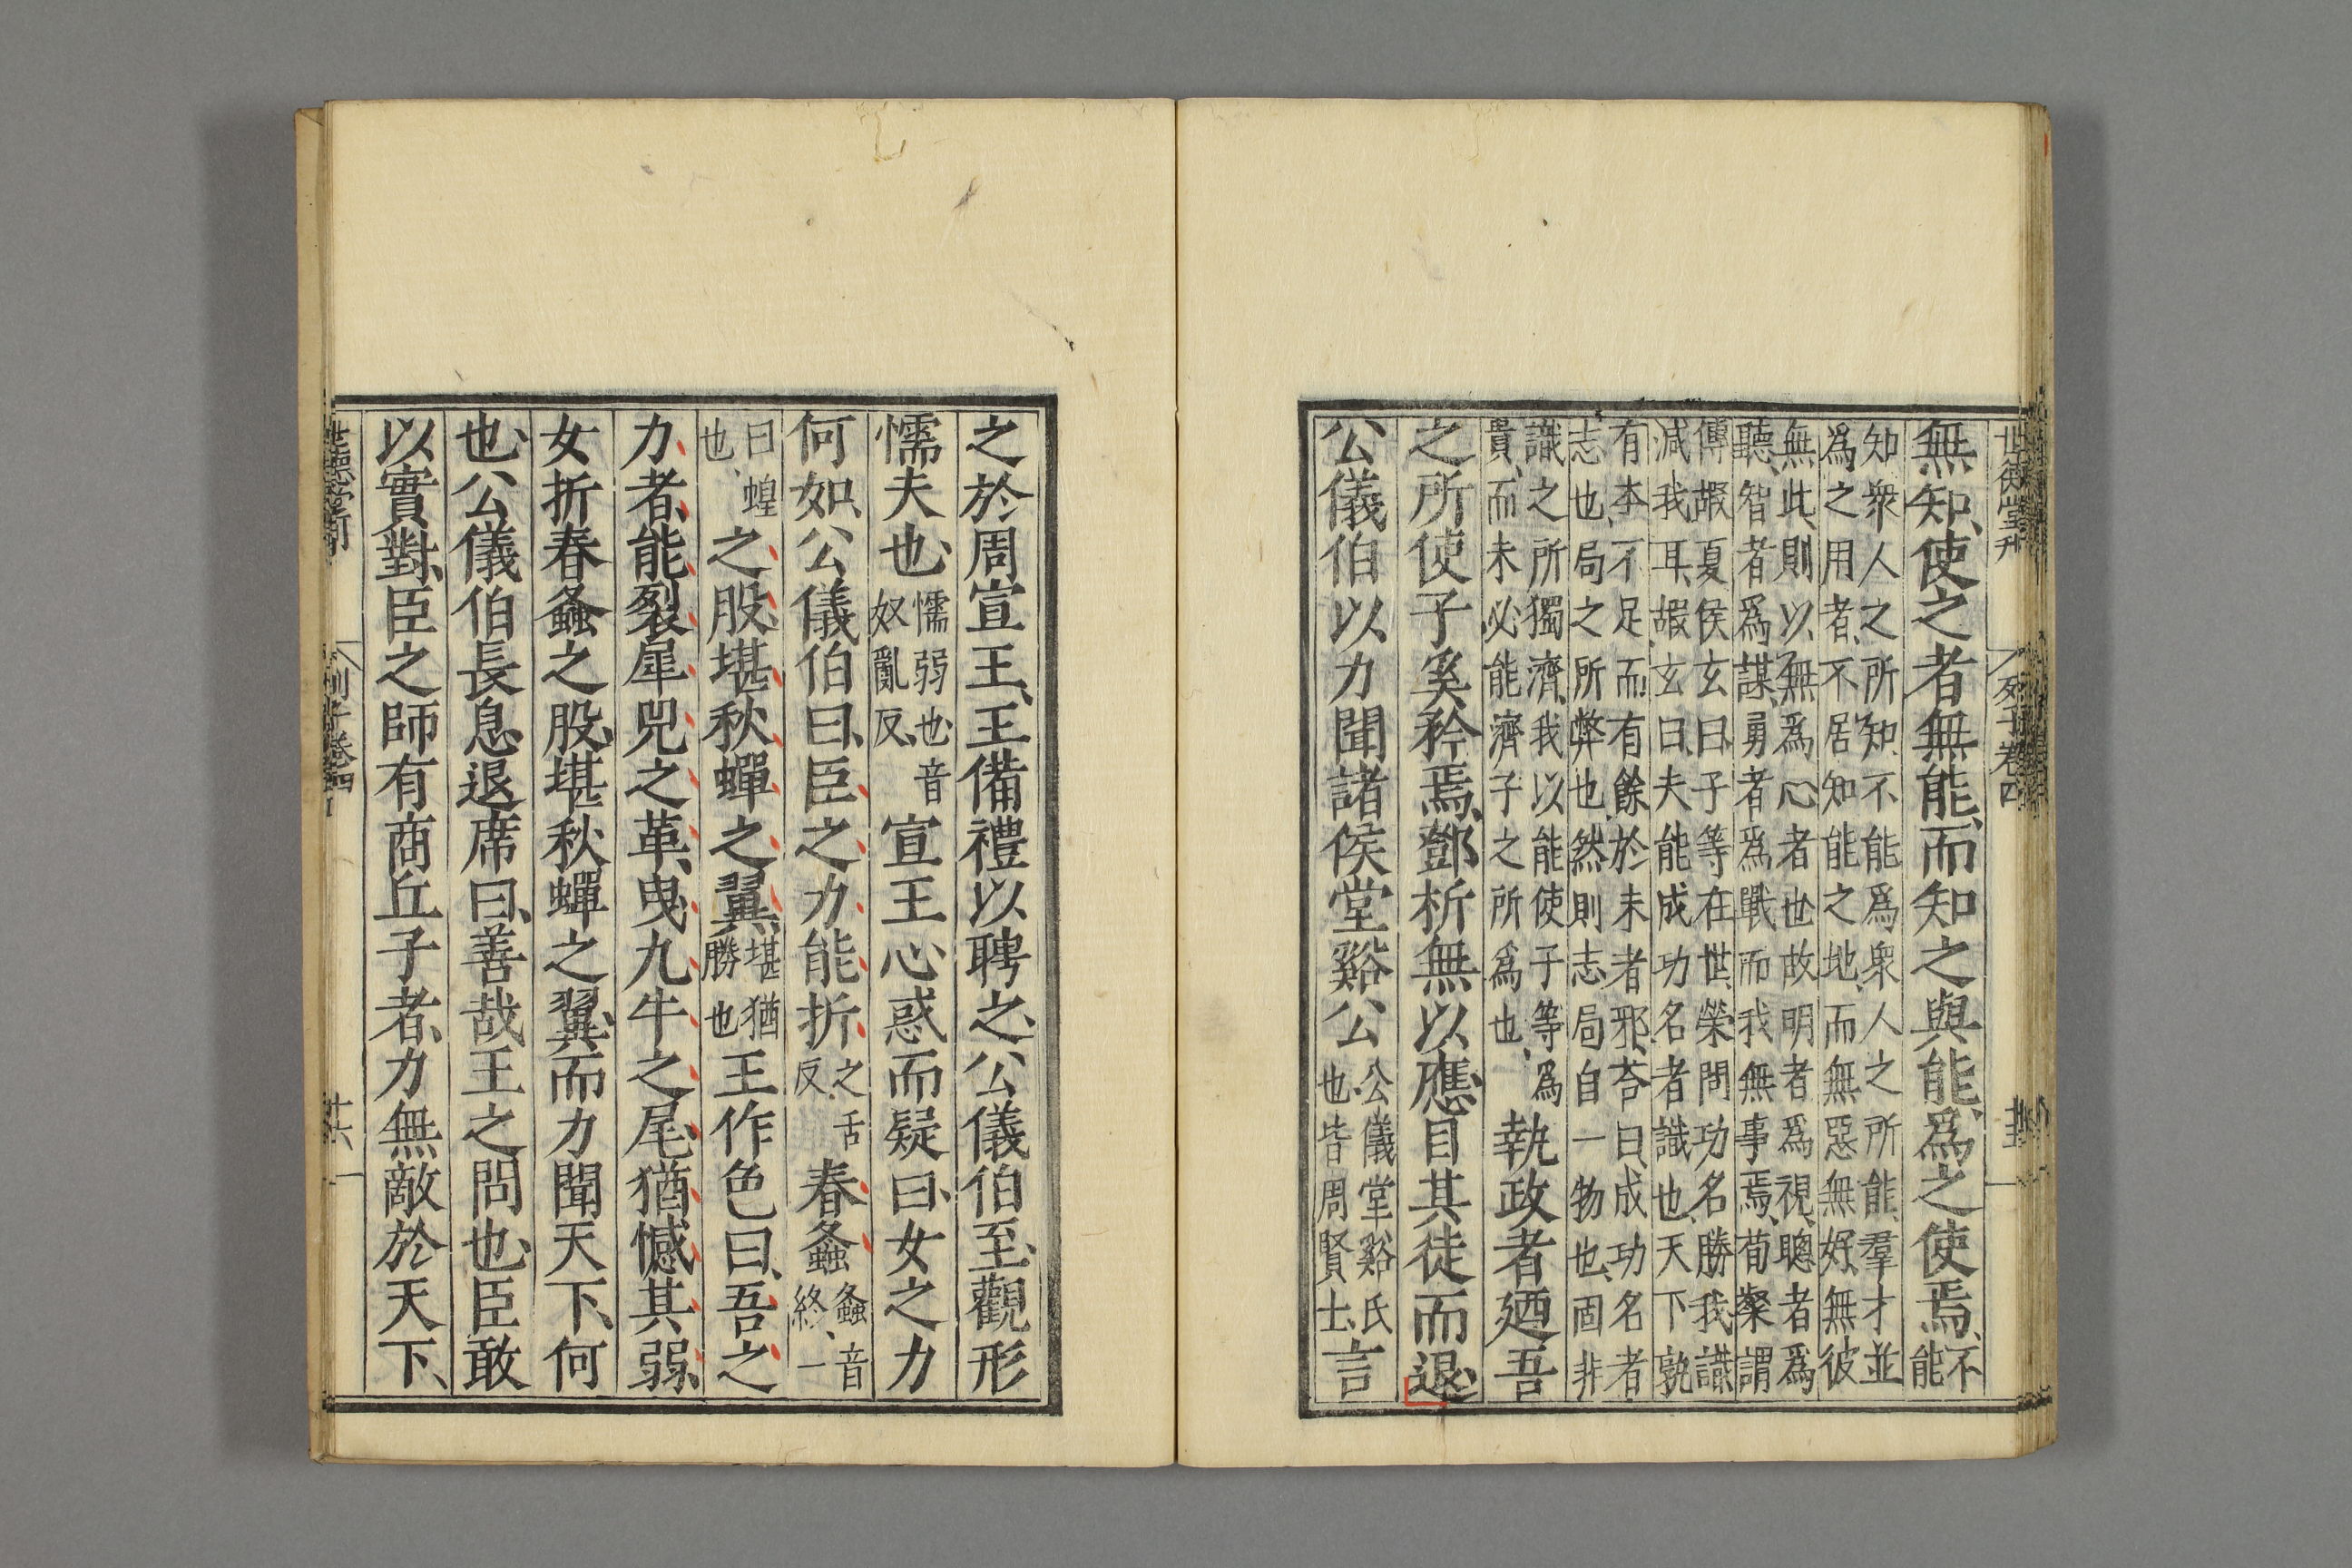 世德堂刊 列子卷四
無知、使之者無能、而知之與能、爲之使焉、不
能
知衆人之所知、不能爲衆人之所能、羣才並
爲之用者、不居知能之地、而無惡無好、無彼
無此、則以無爲心者也故明者爲視、聰者爲
聽、智者爲謀、勇者爲戰而我無事焉、荀粲謂
傅嘏夏侯玄曰、子等在世、榮問功名勝我、識
減我耳、嘏玄曰、夫能成功名者識也、天下孰
有本、不足、而有餘於末者邪、荅曰、成功名者
志也、局之所弊也、然則志局自一物也、固非
識之所獨濟、我以能使子等爲
貴、而未必能濟子之所爲也、
執政者廼吾
之所使子奚矜焉、鄧析無以應、目其徒而退、
公儀伯以力聞諸侯堂谿公
公儀堂谿氏
也、皆周賢士、
言
之於周宣王、王備禮以聘之、公儀伯至、觀形
懦夫也、
懦弱也、音
奴亂反、
宣王心惑而疑曰、女之力
何如、公儀伯曰、臣之力能折
之舌
反、
春螽
螽音
終、一
曰蝗
也、
之股、堪秋蟬之翼、
堪猶
勝也
王作色曰、吾之
力者、能裂犀兕之革、曳九牛之尾、猶憾其弱、
女折春螽之股、堪秋蟬之翼、而力聞天下、何
也、公儀伯長息退席曰、善哉王之問也、臣敢
以實對、臣之師有商丘子者、力無敵於天下、
列子卷四 廿六